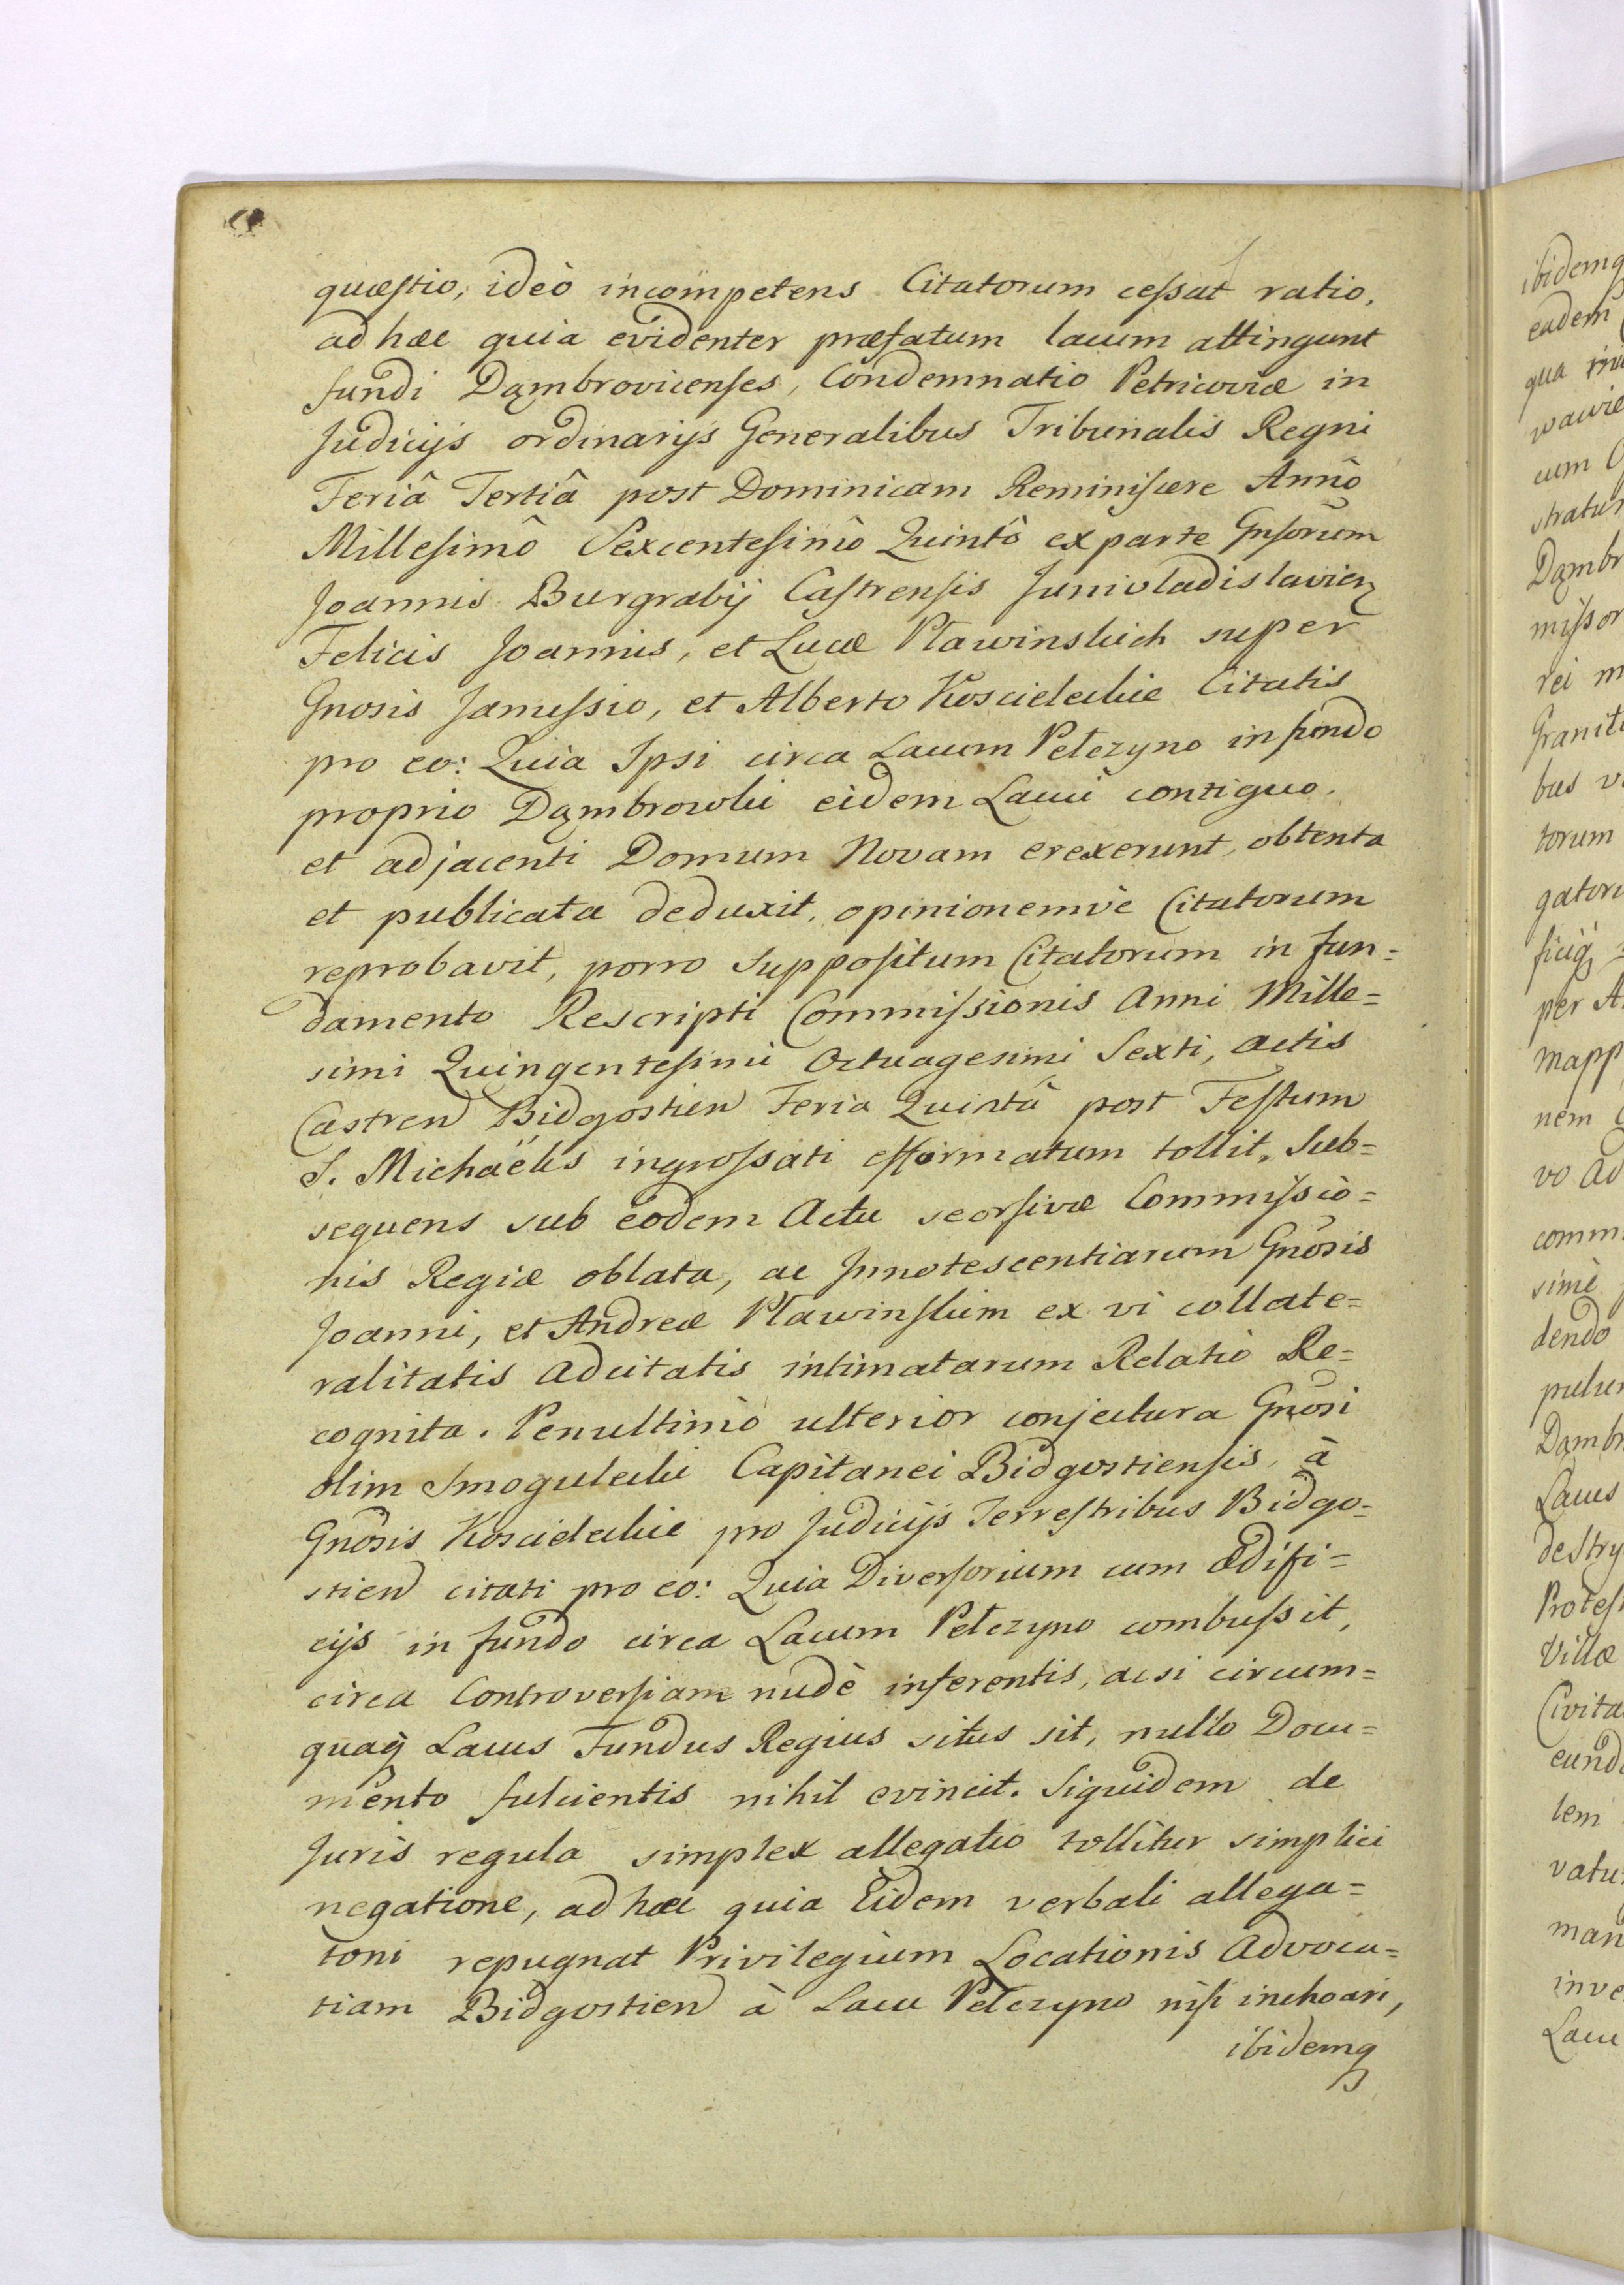 quæstio, ideò incompetens Citatorum cessat ratio,
ad hæc quia evidenter præfatum lacum attingunt
fundi Dąmbrovicenses, Condemnatio Petricoviæ in
Judicijs ordinarijs Generalibus Tribunalis Regni
Feriâ Tertiâ post Dominicam Reminiscere Annô
Millesimô Sexcentesimô Quintô ex parte Gnsorum
Joannis Burgrabij Castrensis Junivladislavien
Felicis Joannis, et Lucæ Pławinskich super
Gnosis Janussio, et Alberto Koscieleckie Citatis
pro eo: Quia Ipsi circa Lacum Pełczyno in fundo
proprio Dąmbrowki eidem Lacui contiguo.
et adjacenti Domum Novam erexerunt, obtenta
et publicata deduxit, opinionemvè Citatorum
reprobavit, porro Suppositum Citatorum in Fun=
damento Rescripti Commissionis Anni Mille=
simi Quingentesimi Octuagesimi Sexti, actis
Castren Bidgostien Feria Quintâ post Festum
S. Michaëlis ingrossati efformatum tollit, Sub=
sequens sub eodem Actu seorsivæ Commissio=
nis Regiæ oblata, ac Jnnotescentiarum Gnosis
Joanni, et Andreæ Pławinskim ex vi collate=
ralitatis adcitatis intimatarum Relatio Re=
cognita. Penultimò ulterior conjectura Gnosi
olim Smogulecki Capitanei Bidgostiensis, à
Gnosis Koscieleckie pro Judicijs Terrestribus Bidgo=
stien citati pro eo: Quia Diversorium cum Ædifi=
cijs in fundo circa Lacum Pełczyno combussit,
circa Controversiam nudè inferentis, acsi circum=
quaq Lacus Fundus Regius situs sit, nullo Docu=
mento fulcientis nihil evincit. Siquidem de
Juris regula simplex allegatio tollitur simplici
negatione, ad hæc quia Eidem verbali allega=
toni repugnat Privilegium Locationis Advoca=
tiam Bidgostien à Lacu Pełczyno nisi inchoari,
ibidemq